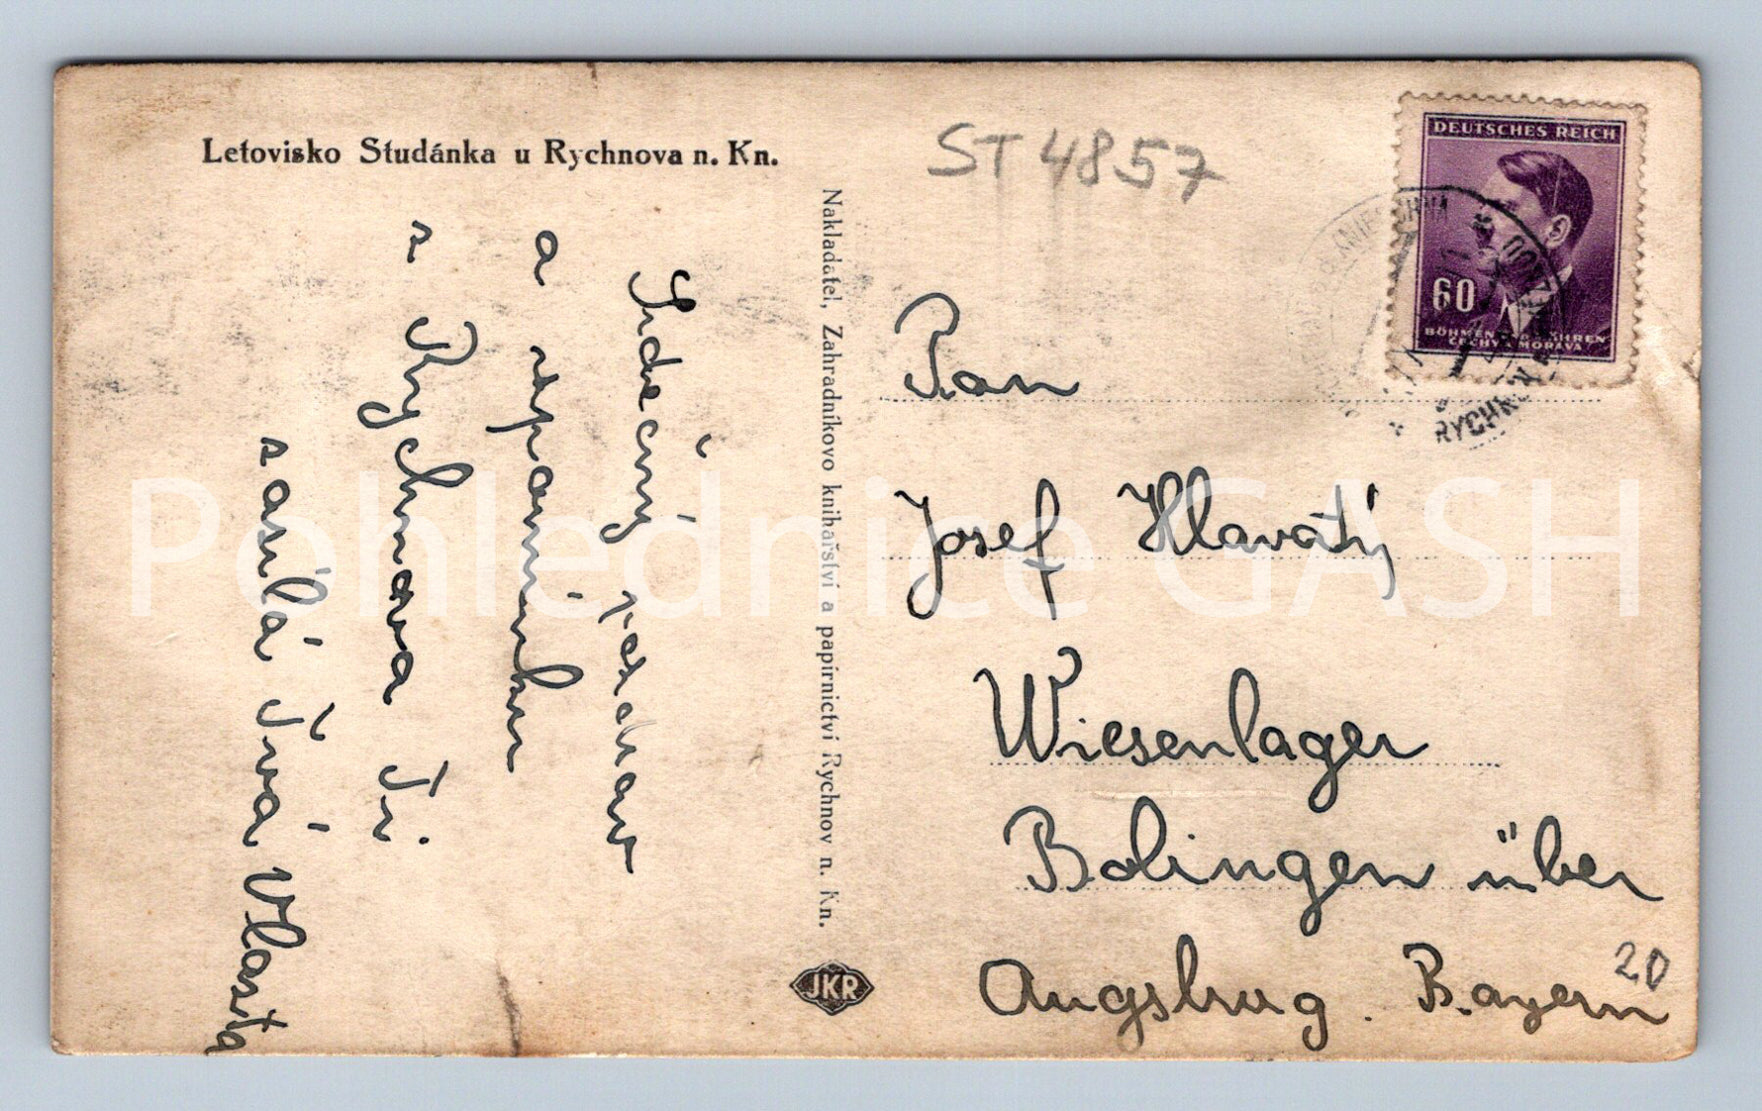 Letovisko Studánka u Rychnova n. Kn.
ST 4857
DEUTSCHES REICH
60
BÖHMEN UND MÄHREN
ČECHY A MORAVA
RYCHNOV
Srdečný pozdrav
a vzpomínku
z Rychnova Ti
zasílá Tvá Vlasta
Nakladatel, Zahradníkovo knihařství a papírnictví Rychnov n. Kn.
JKR
Pan
Josef Hlavatý
Wiesenlager
Bobingen über
Augsburg. Bayern
20
Pohlednice GASH